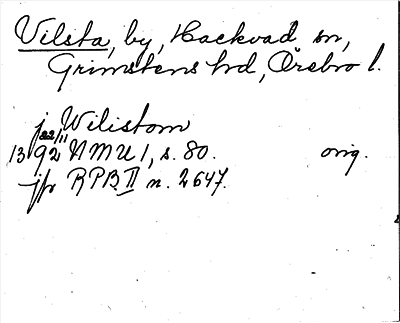 Vilsta, by, Hackvad sn,
Grimstens hd, Örebro l.
j Wilistom
22/11
1392 NMU 1, s. 80. orig.
jfr RPB II n. 2647.